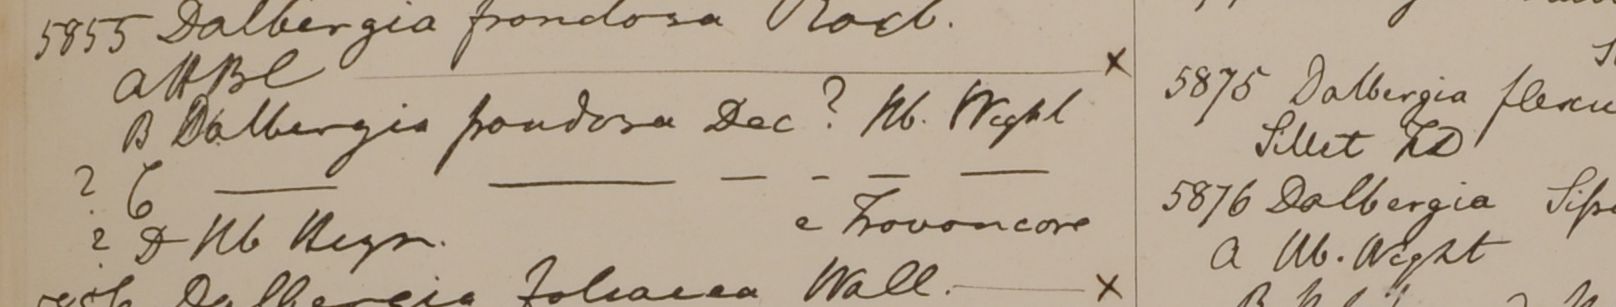 5855 Dalbergia frondosa Roxb.
a HBC
B Dalbergia frondosa Dec ? Hb. Wight
? C
? D Hb Heyn. e Travancore
Dalbergia foliacea Wall.
5875 Dalbergia flexu
Sillet FD
5876 Dalbergia
a Hb. Wight